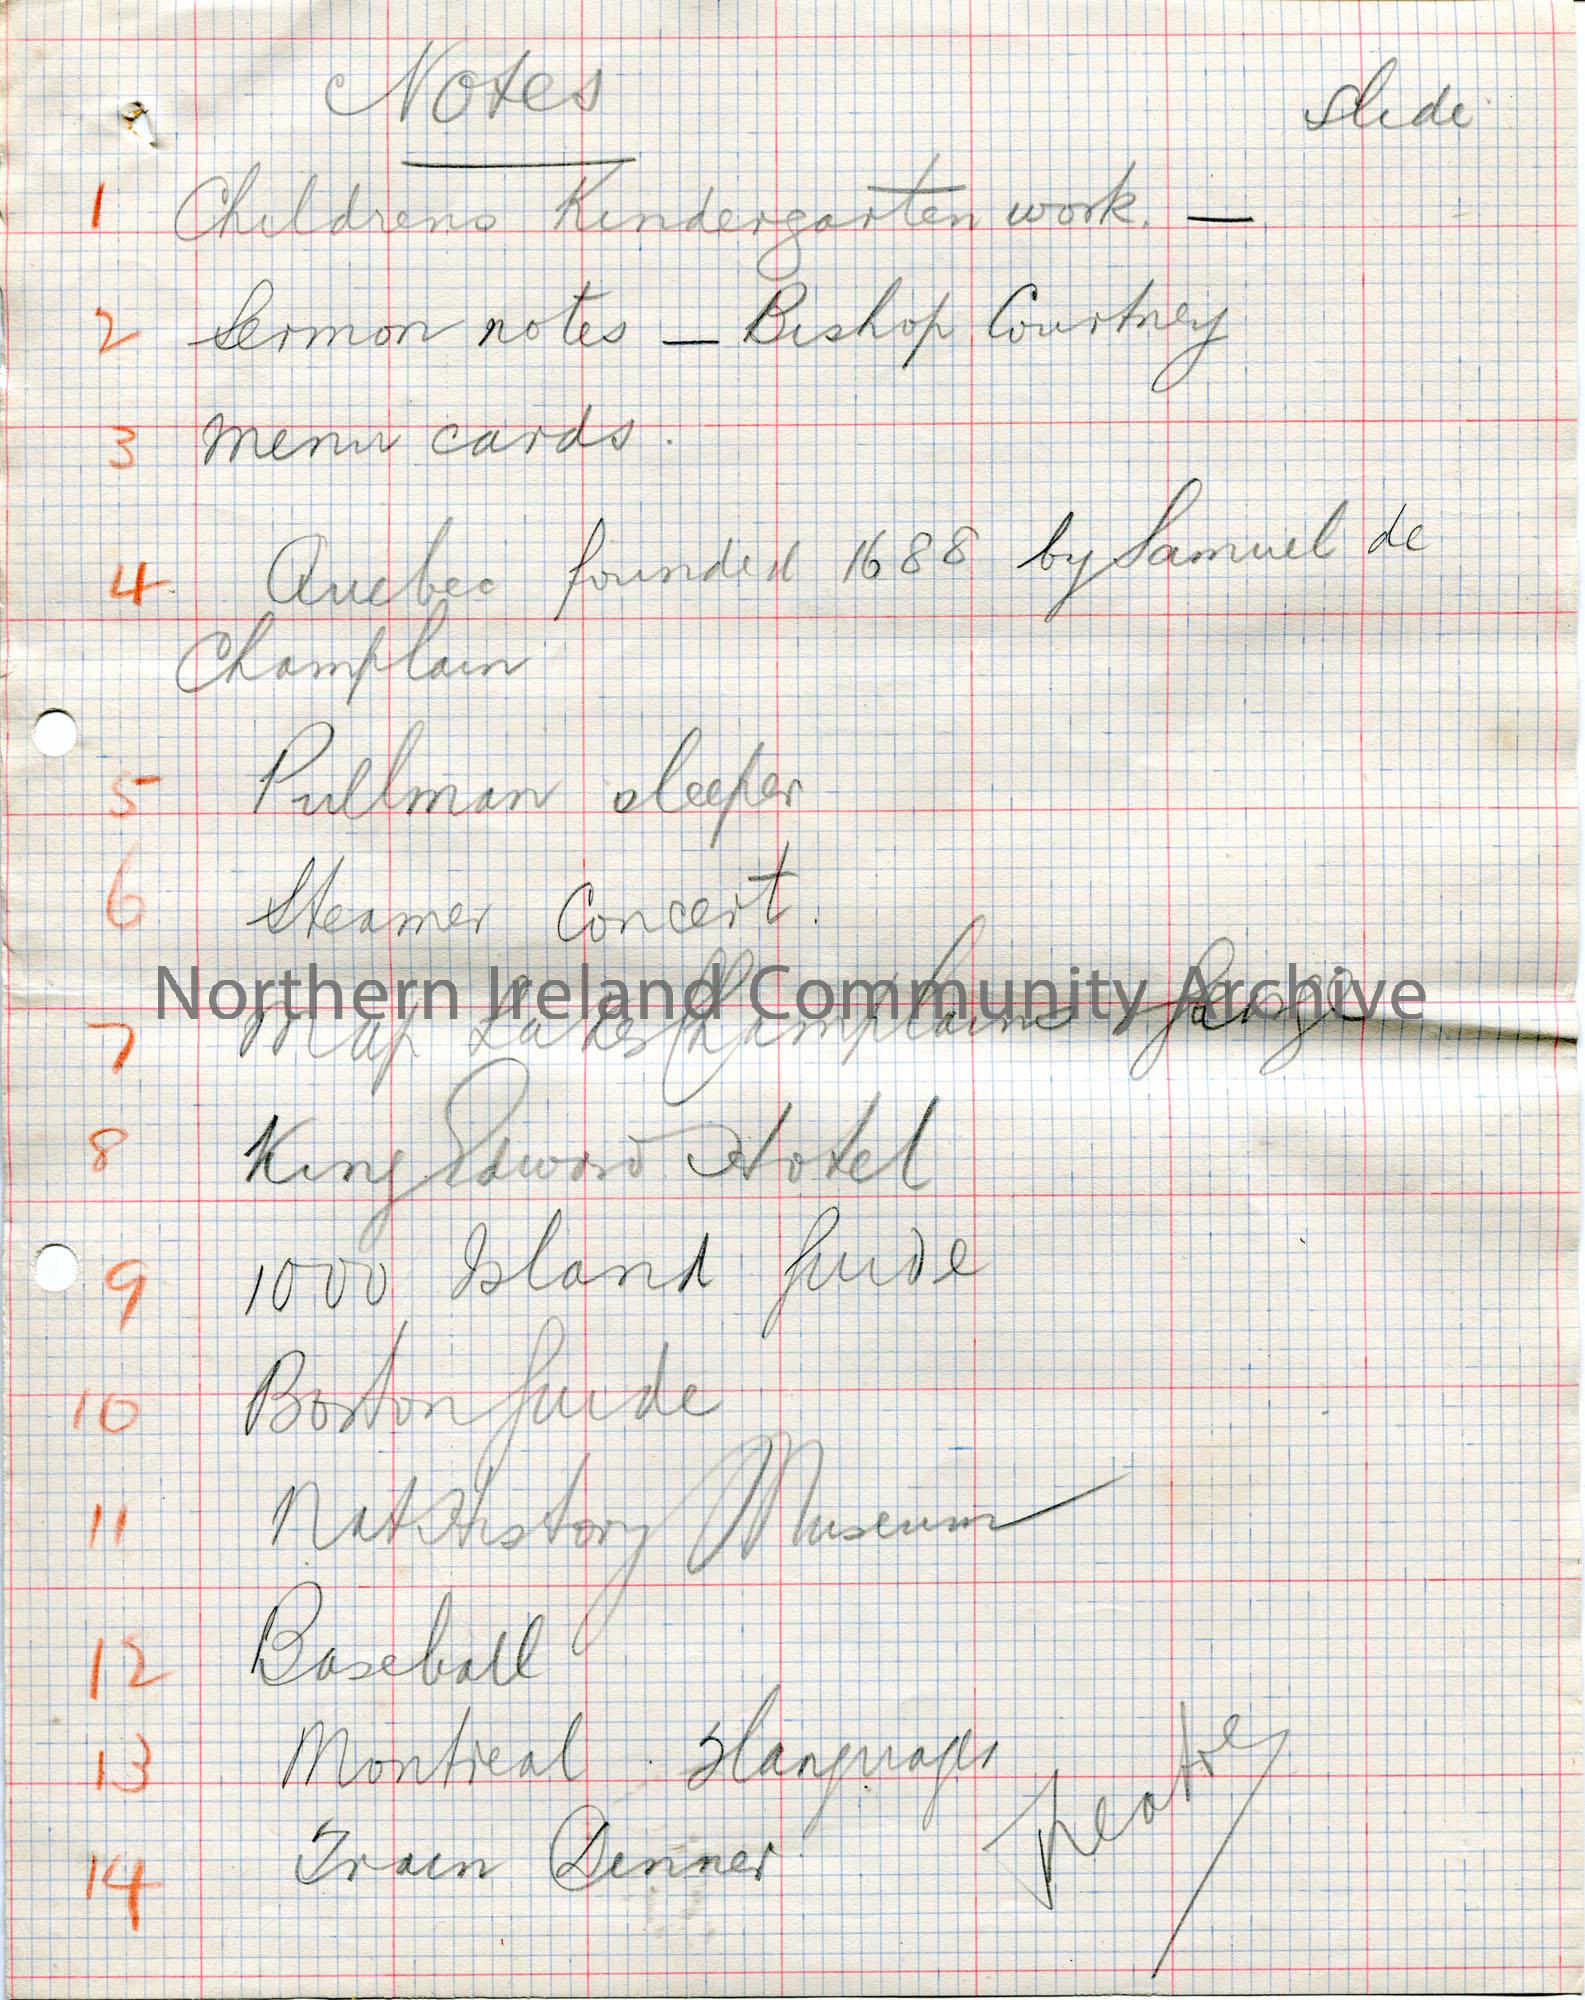 Notes
slide
1 Childrens Kindergarten work. —
2 Sermon notes — Bishop Courtney
3 Menu cards.
4 Quebec founded 1688 by Samuel de
Champlain
5 Pullman sleeper
6 Steamer Concert.
Northern Ireland Community Archive
7 Map Lakes Champlain &
8 King Edward Hotel
9 1000 Island Guide
10 Boston Guide
11 Nat History Museum
12 Baseball
13 Montreal . 3 languages
14 Train Dinner